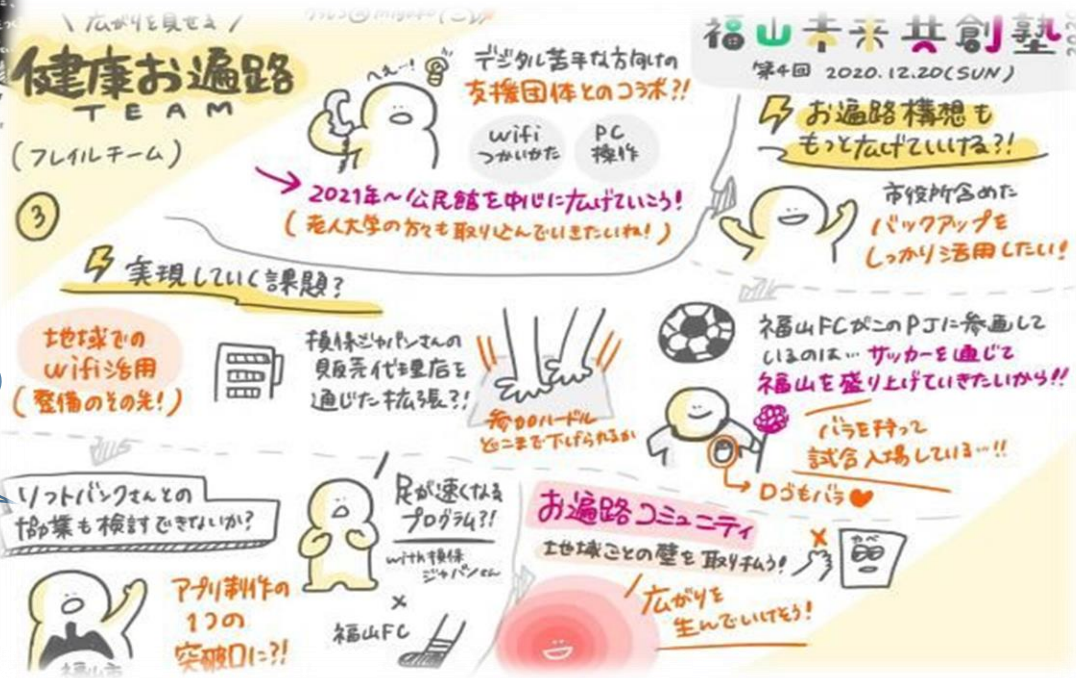 広がりを見せる
健康お遍路
TEAM
(フレイルチーム)
③
へぇ~!
デジタル苦手な方向けの
支援団体とのコラボ?!
wifi
つかいかた
PC
操作
2021年~公民館を中心に広げていこう!
(老人大学の方々も取り込んでいきたいね!)
福山未来共創塾
第4回 2020.12.20(SUN)
お遍路構想も
もっと広げていける?!
市役所含めた
バックアップを
しっかり活用したい!
実現していく課題?
地域での
wifi活用
(整備のその先!)
損保ジャパンさんの
販売代理店を
通じた拡張?!
参加ハードル
どこまで下げられるか
福山FCがこのPJに参画して
いるのは…サッカーを通じて
福山を盛り上げていきたいから!!
バラを持って
試合入場している…!!
ロゴもバラ♥
ソフトバンクさんとの
協業も検討できないか?
アプリ制作の
1つの
突破口に?!
福山市
足が速くなる
プログラム?!
with損保
ジャパンさん
×
福山FC
お遍路コミュニティ
地域ごとの壁を取り払う!
かべ
広がりを
生んでいけそう!